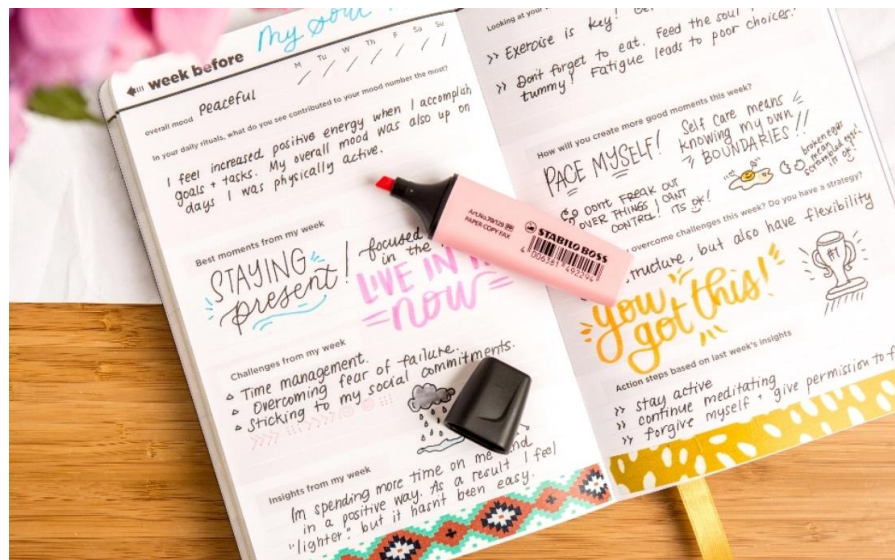 My soul
week before
M Tu W Th F Sa Su
overall mood Peaceful
In your daily rituals, what do you see contributed to your mood number the most?
I feel increased positive energy when I accomplish
goals + tasks. My overall mood was also up on
days I was physically active.
Best moments from my week
STAYING
present!
focused
in the
LIVE IN
now
Challenges from my week
Time management.
Overcoming fear of failure.
Sticking to my social commitments.
Insights from my week
Im spending more time on me and
in a positive way. As a result I feel
"lighter" but it hasnt been easy.
Looking at your
>> Exercise is key!
>> Dont forget to eat. Feed the soul
tummy! Fatigue leads to poor choices.
How will you create more good moments this week?
PACE MYSELF!
Self care means
knowing my own
BOUNDARIES!!
broken eggs
mean
scrambled eggs!
its ok!
DONT FREAK OUT
OVER THINGS I CANT
CONTROL! ITS OK!
overcome challenges this week? Do you have a strategy?
structure, but also have flexibility
you
got this!
#1
Action steps based on last week's insights
>> stay active
>> continue meditating
>> forgive myself + give permission to
Art.No.70/129
PAPER COPY FAX
STABILO BOSS
4 006381 492294